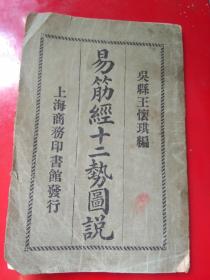 吳縣王懷琪編
易筋經十二勢圖説
上海商務印書館發行